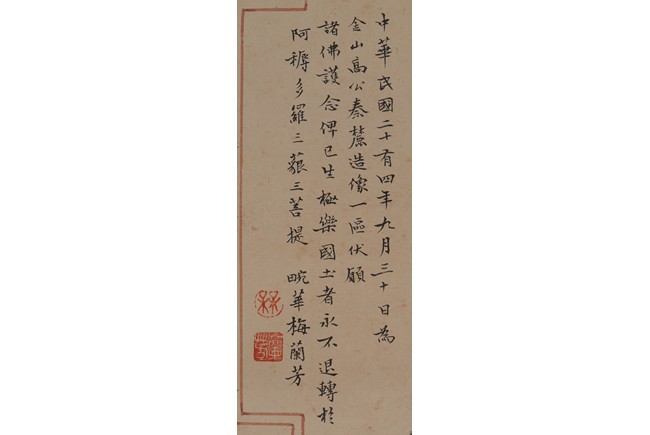 中華民國二十有四年九月三十日為
金山高公秦麓造像一區伏願
諸佛護念俾已生極樂國土者永不退轉於
阿耨多羅三藐三菩提　畹華梅蘭芳